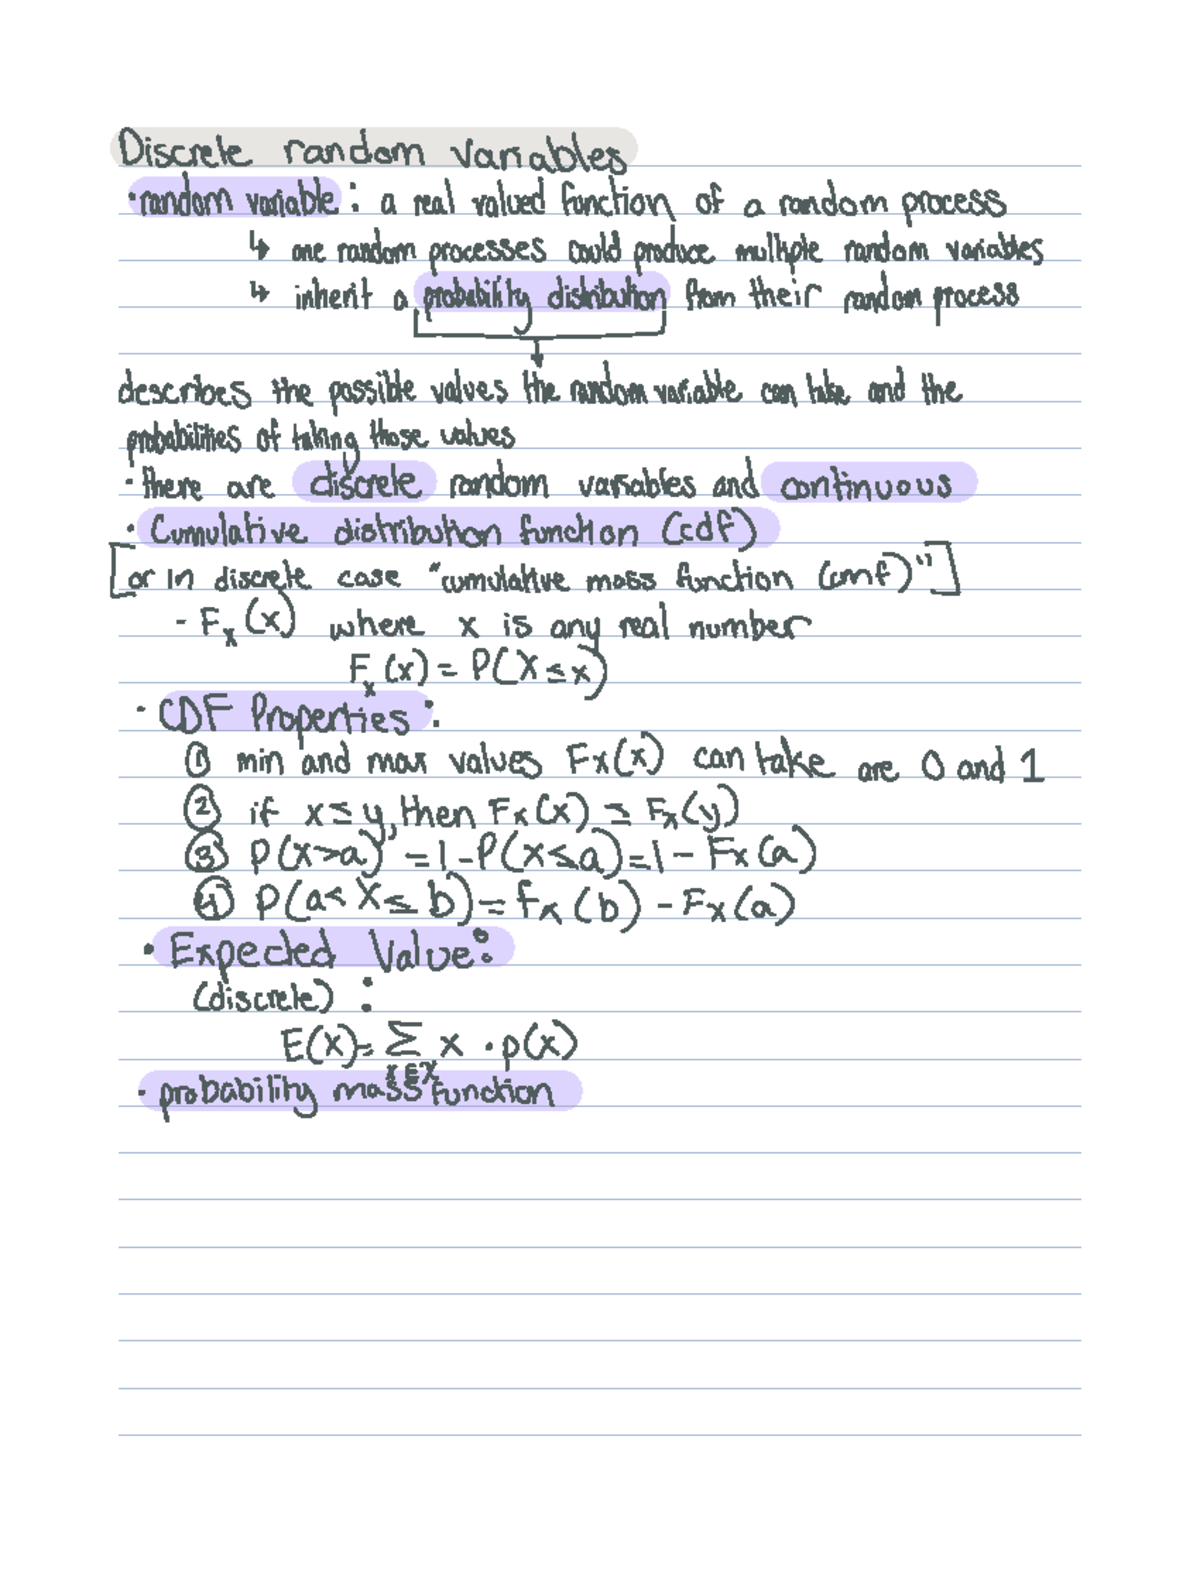 Discrete random variables
·random variable: a real valued function of a random process
↳ one random processes could produce multiple random variables
↳ inherit a probability distribution from their random process
describes the possible values the random variable can take and the
probabilities of taking those values
· there are discrete random variables and continuous
· Cumulative distribution function (cdf)
[or in discrete case "cumulative mass function (cmf)"]
- Fₓ(x) where x is any real number
Fₓ(x) = P(X ≤ x)
· CDF Properties:
① min and max values Fx(x) can take are 0 and 1
② if x ≤ y, then Fx(x) ≤ Fx(y)
③ P(x>a) = 1 - P(x≤a) = 1 - Fx(a)
④ P(a< X ≤ b) = fx(b) - Fx(a)
· Expected Value:
(discrete) :
E(X) = Σ x · p(x)
x∈X
· probability mass function